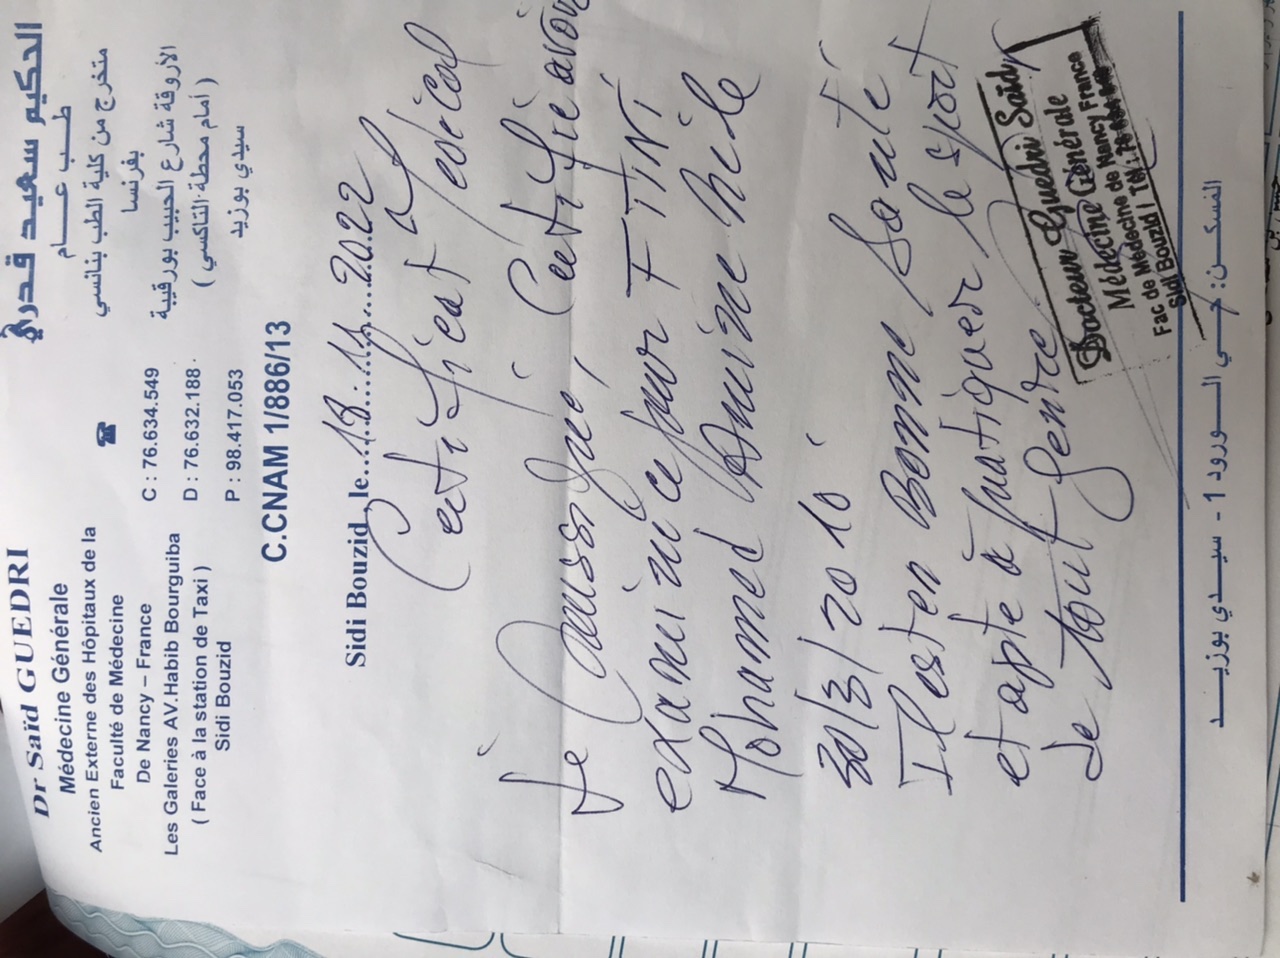 Dr Saïd GUEDRI
Médecine Générale
Ancien Externe des Hôpitaux de la
Faculté de Médecine
De Nancy – France
Les Galeries AV.Habib Bourguiba
( Face à la station de Taxi )
Sidi Bouzid
الحكيم سعيد قدري
طب عام
متخرج من كلية الطب بنانسي
بفرنسا
الأروقة شارع الحبيب بورقيبة
( أمام محطة التاكسي )
سيدي بوزيد
C : 76.634.549
D : 76.632.188
P : 98.417.053
C.CNAM 1/886/13
Sidi Bouzid, le 18.11.2022
Certificat Medical
Je Certifie avoir
examiné ce jour FTINI
Mohamed Amine
30/3/2010
Il est en Bonne Santé
et apte à pratiquer le sport
de tout genre
Docteur Guedri Saïd
Médecine Générale
Fac de Médecine de Nancy France
Sidi Bouzid / Tél :
المسكن : حي الورود 1 - سيدي بوزيد